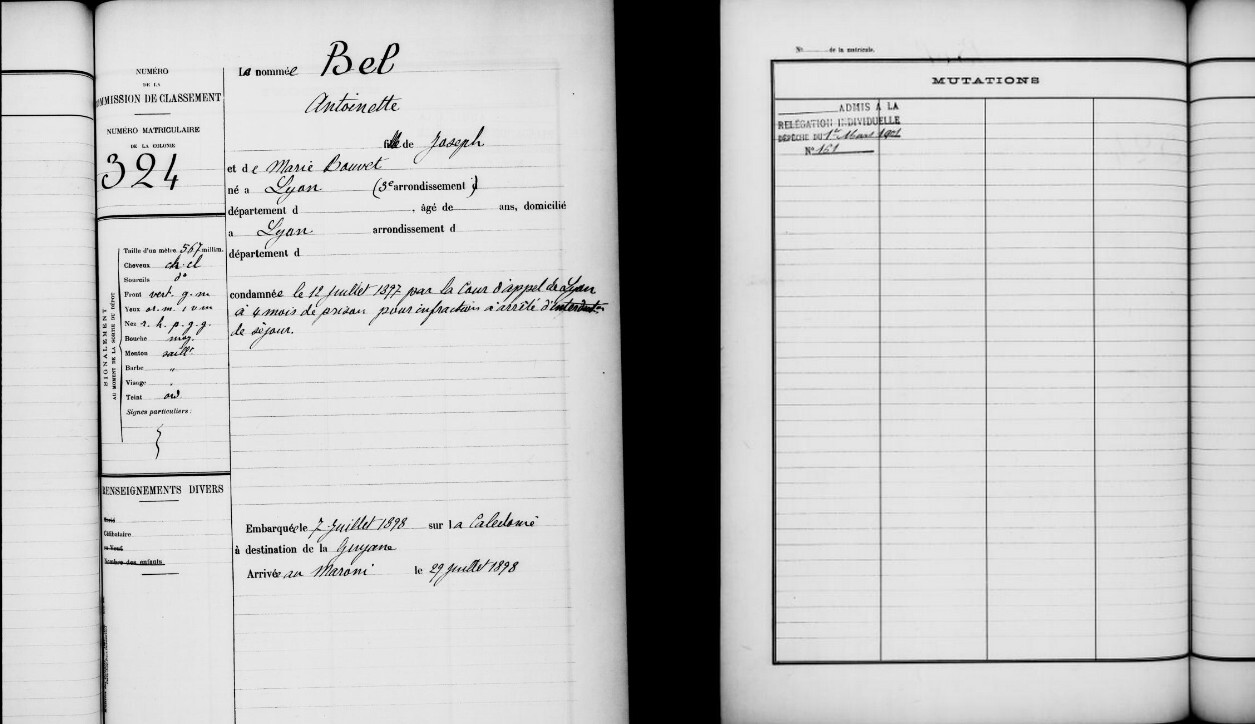 NUMÉRO
DE LA
COMMISSION DE CLASSEMENT
NUMÉRO MATRICULAIRE
DE LA COLONIE
324
La nommée Bel
Antoinette
fille de Joseph
et de Marie Bouvet
né a Lyon (3e arrondissement)
département d , âgé de ans, domicilié
a Lyon arrondissement d
département d
condamnée le 12 Juillet 1897 par la Cour d'appel de Lyon
à 4 mois de prison pour infraction à arrêté d'interdict-
de séjour.
SIGNALEMENT
AU MOMENT DE LA SORTIE DU DÉPÔT
Taille d'un mètre 567 millim.
Cheveux ch. cl
Sourcils do
Front vert. g. m
Yeux or. m.
Nez r. h. p. g. g.
Bouche moy.
Menton saillt.
Barbe "
Visage
Teint ord
Signes particuliers :
RENSEIGNEMENTS DIVERS
Marié
Célibataire
ou Veuf
Nombre des enfants
Embarquée le 7 Juillet 1898 sur la Calédonie
à destination de la Guyane
Arrivée au Maroni le 29 Juillet 1898
No de la matricule.
MUTATIONS
ADMIS A LA
RELÉGATION INDIVIDUELLE
DÉPÊCHE DU 1er Mars 1901
No 151